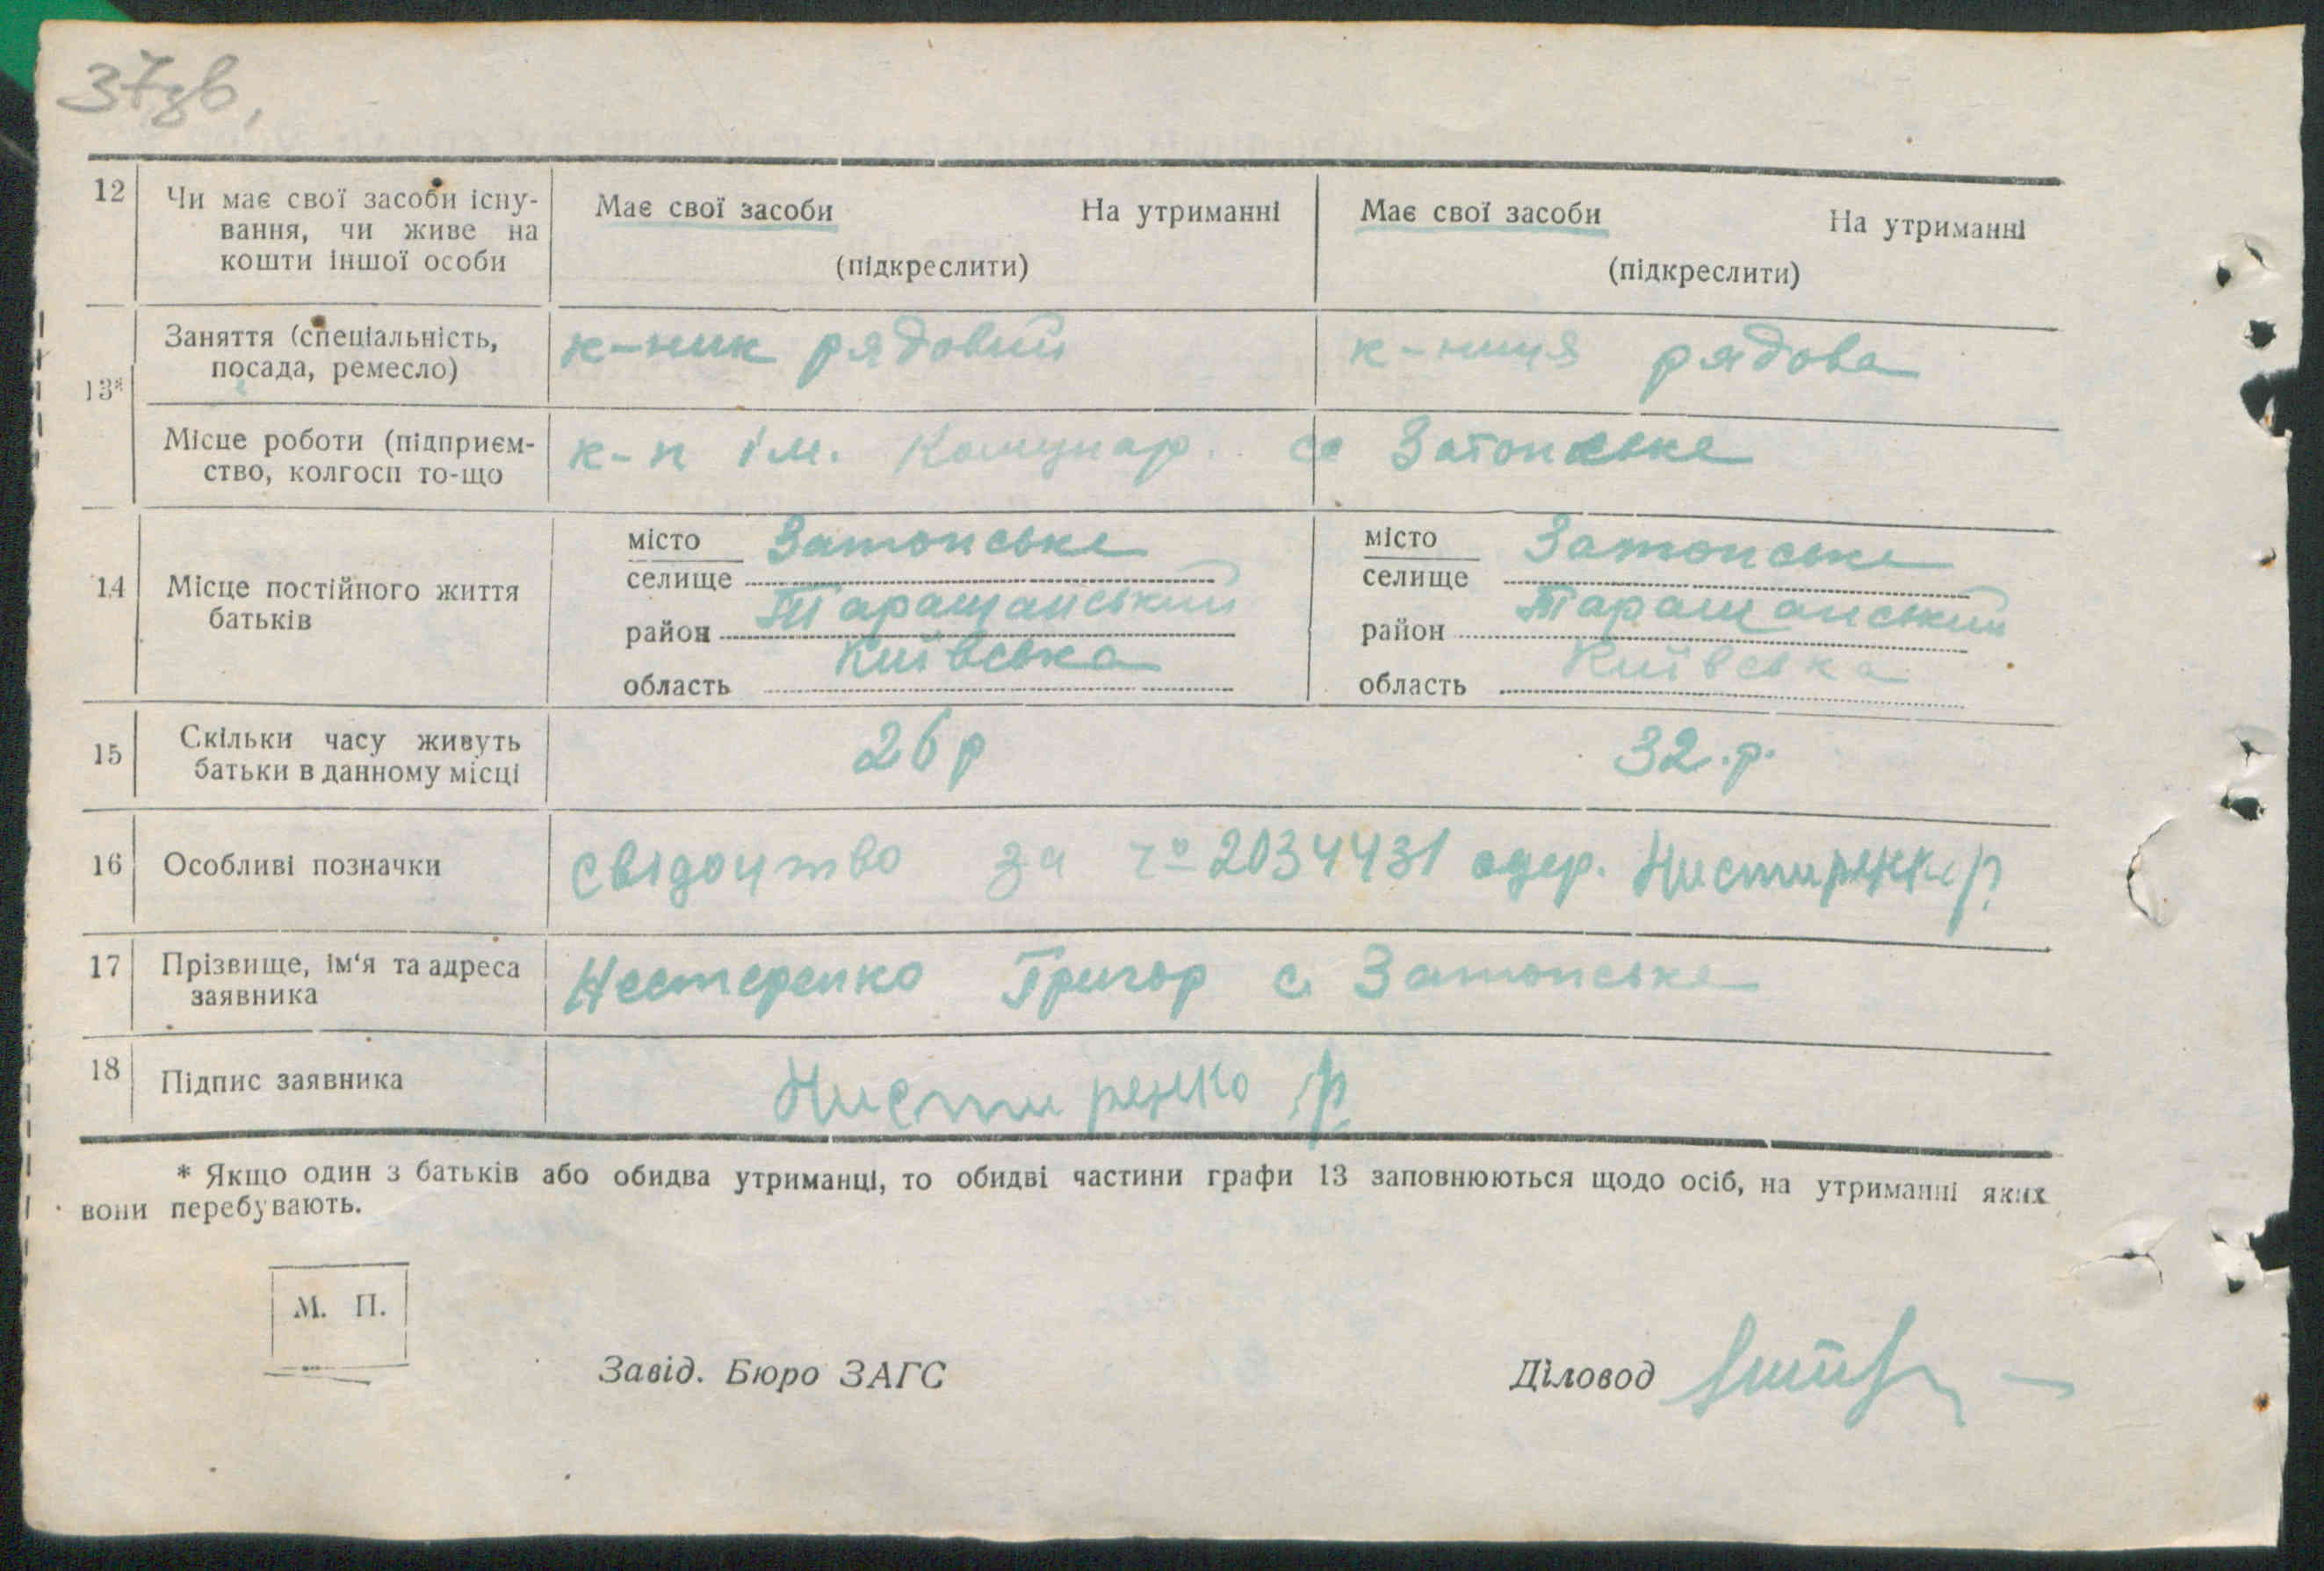 37зв,
12 Чи має свої засоби існу-
вання, чи живе на
кошти іншої особи
Має свої засоби На утриманні
(підкреслити)
Має свої засоби На утриманні
(підкреслити)
13*
Заняття (спеціальність,
посада, ремесло)
к-ник рядовий
к-ниця рядова
Місце роботи (підприєм-
ство, колгосп то-що
к-п ім. Комунар. с Затонське
14 Місце постійного життя
батьків
місто Затонське
селище
район Таращанський
область Київська
місто Затонське
селище
район Таращанський
область Київська
15 Скільки часу живуть
батьки в данному місці
26 р
32.р.
16 Особливі позначки
свідоцтво за № 2034431 одер.
17 Прізвище, ім‘я та адреса
заявника
Нестеренко Григор с. Затонське
18 Підпис заявника
Нистиренко
* Якщо один з батьків або обидва утриманці, то обидві частини графи 13 заповнюються щодо осіб, на утриманні яких
вони перебувають.
М. П.
Завід. Бюро ЗАГС
Діловод